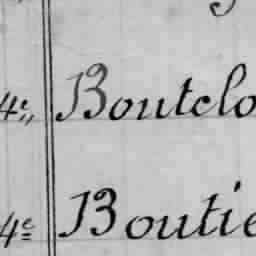 4e, Boutclo
4e Boutie